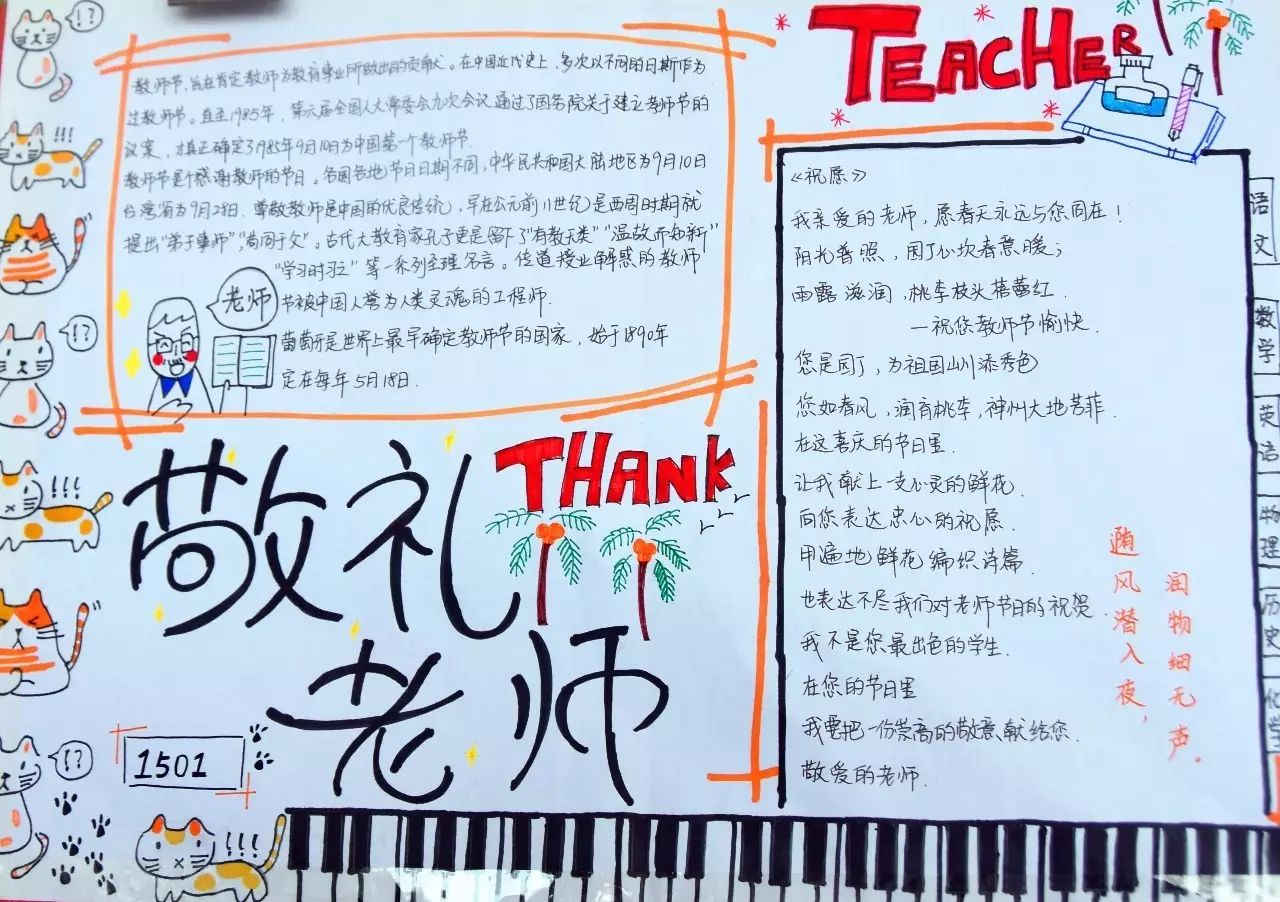 教师节,旨在肯定教师为教育事业所做出的贡献。在中国近代史上,多次以不同的日期作为
过教师节。直至1985年,第六届全国人大常委会九次会议通过了国务院关于建立老师节的
议案,才真正确定了1985年9月10日为中国第一个教师节.
教师节是个感谢教师的节日。各国各地节日日期不同,中华民共和国大陆地区为9月10日
台湾省为9月28日.尊敬教师是中国的优良传统,早在公元前11世纪是西周时期就
提出"弟子事师""尚同于父"。古代大教育家孔子更是留下了"有教无类""温故而知新"
"学习时习之"等一系列至理名言。传道授业解惑的教师
节被中国人誉为人类灵魂的工程师.
葡萄牙是世界上最早确定教师节的国家,始于1890年
定在每年5月18日.
老师
敬礼
THANK
老师
1501
TEACHER
《祝愿》
我亲爱的老师,愿春天永远与您同在!
阳光普照,园丁心坎春意暖;
雨露滋润,桃李枝头蓓蕾红.
—祝您教师节愉快.
您是园丁,为祖国山川添秀色
您如春风,润育桃李,神州大地芳菲.
在这喜庆的节日里.
让我献上一支心灵的鲜花.
向您表达忠心的祝愿.
用遍地鲜花编织诗篇
也表达不尽我们对老师节日的祝贺.
我不是您最出色的学生.
在您的节日里
我要把一份崇高的敬意献给您.
敬爱的老师.
风潜入夜,
润物细无声。
语文
数学
英语
物理
历史
化学
!?
!!!
!?
!!!
!?
!!!